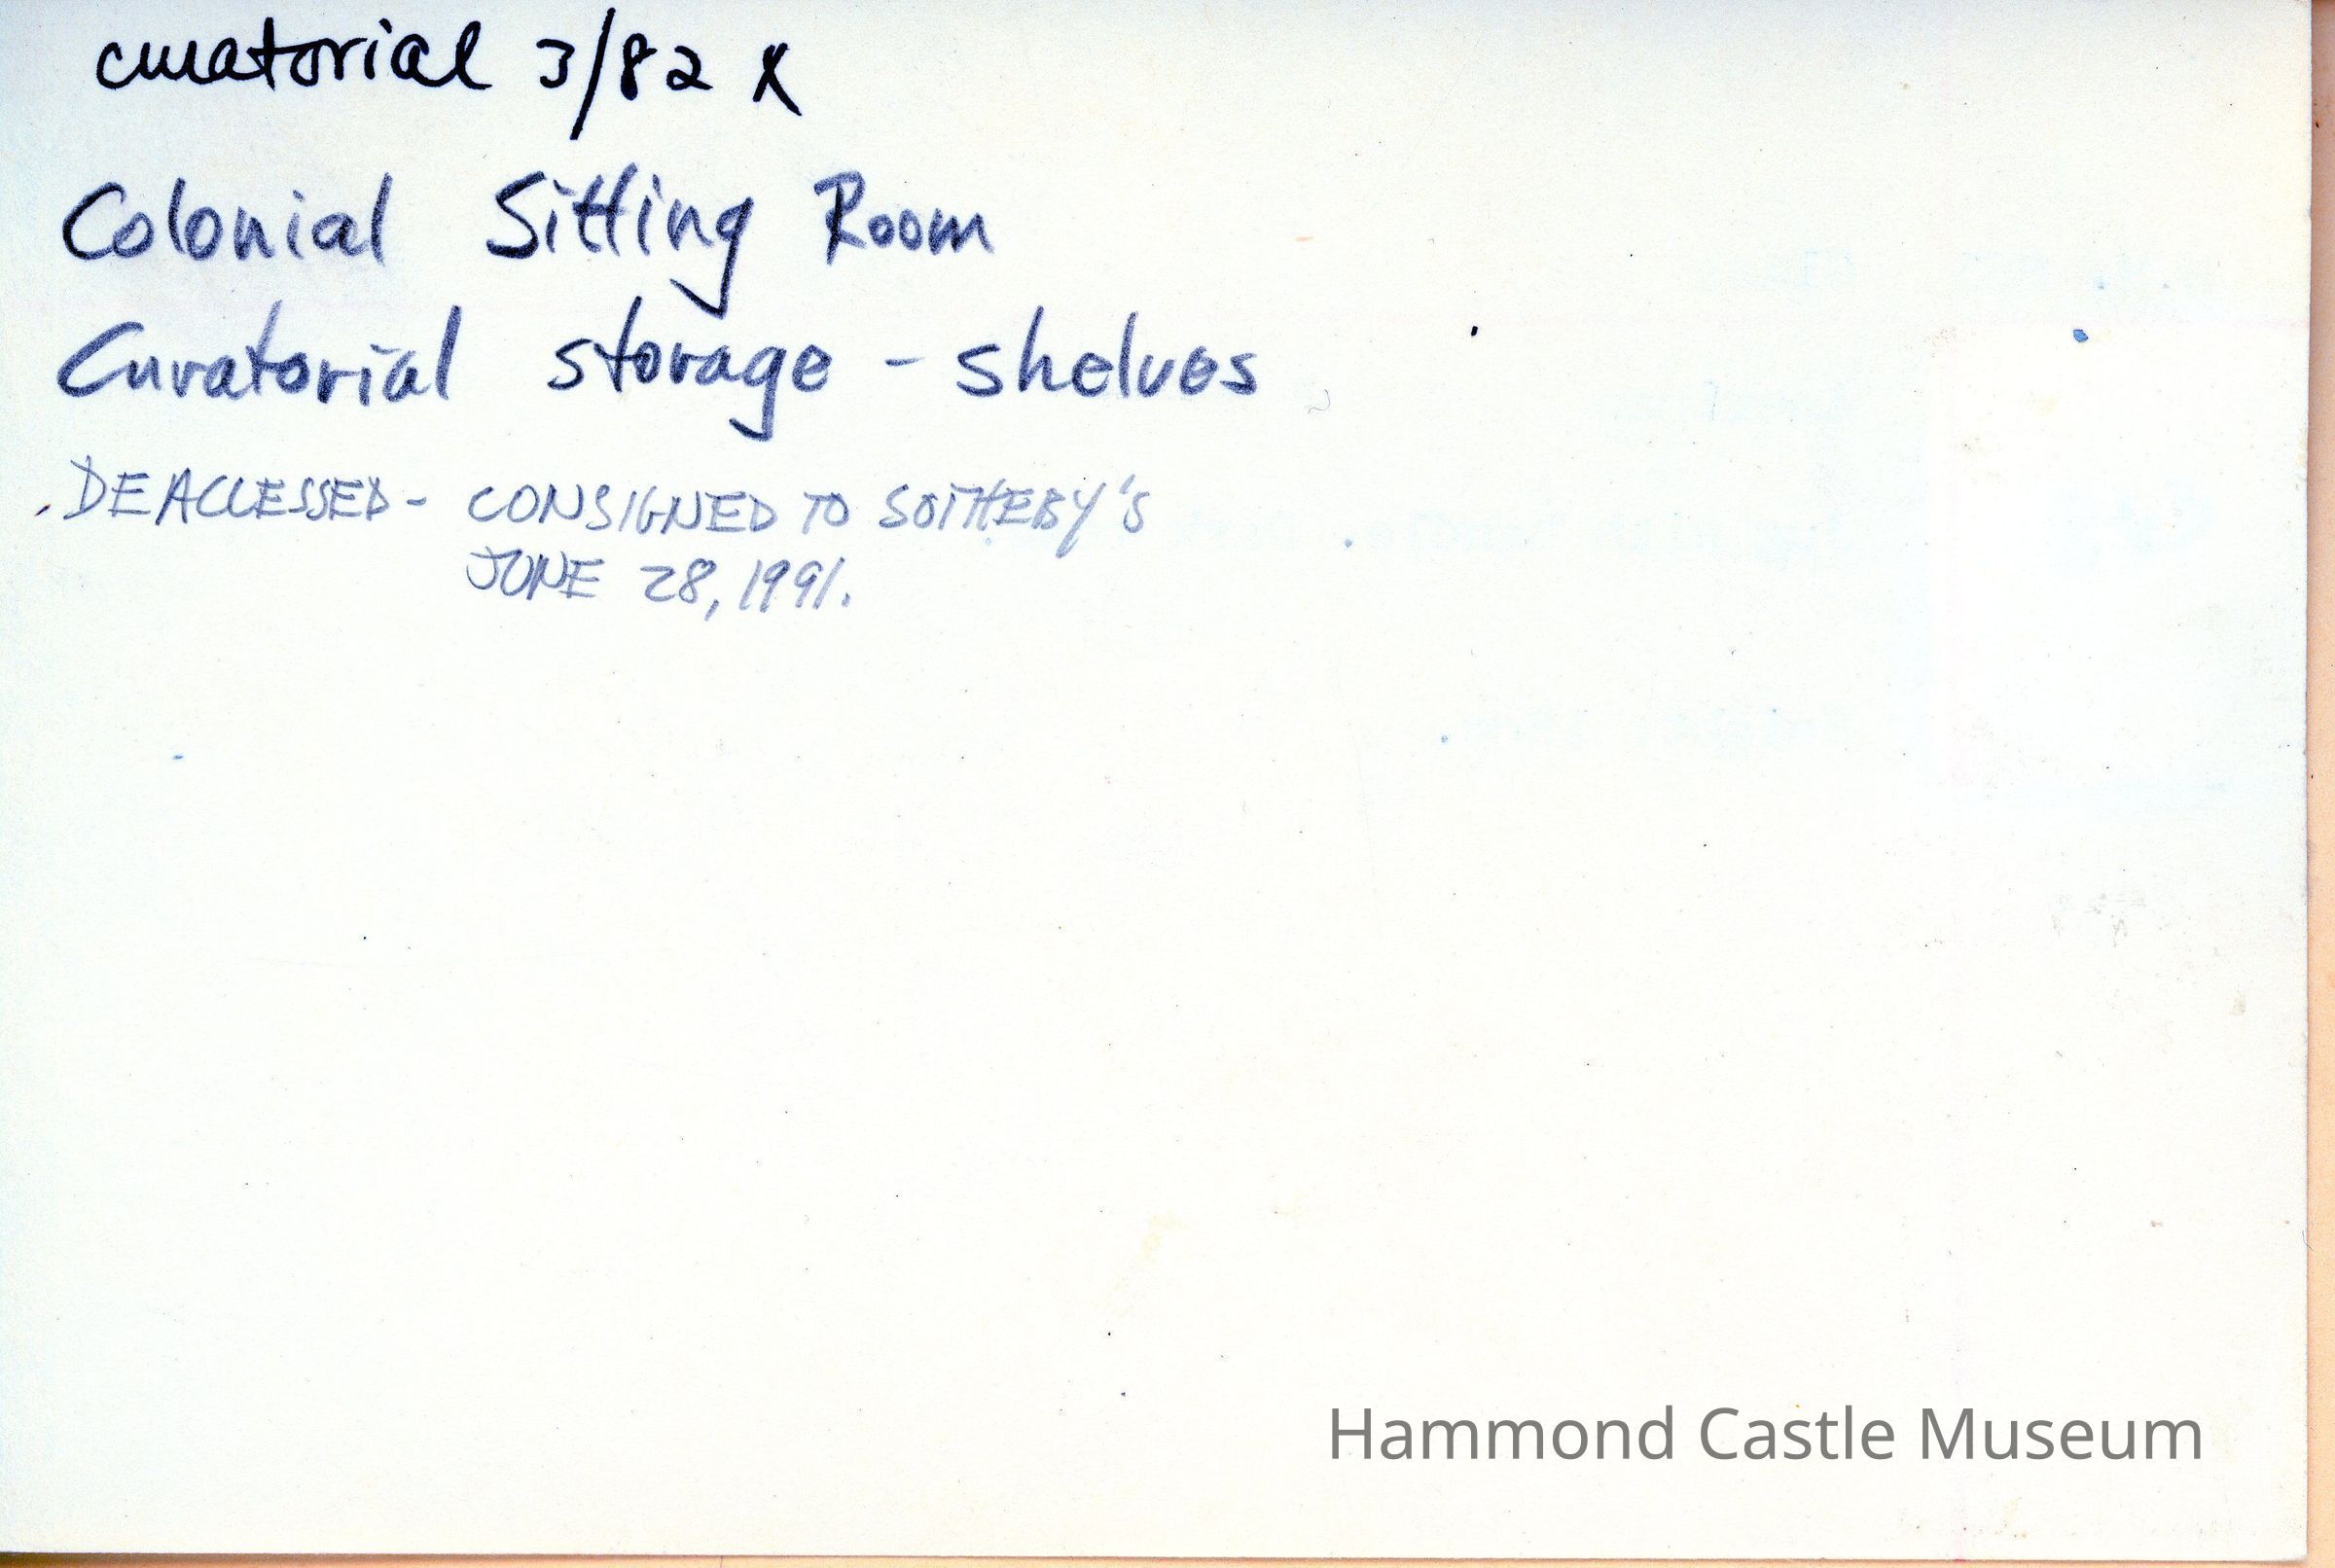 curatorial 3/82 X
Colonial Sitting Room
Curatorial storage - shelves
DEACCESSED - CONSIGNED TO SOTHEBY'S
JUNE 28, 1991.
Hammond Castle Museum